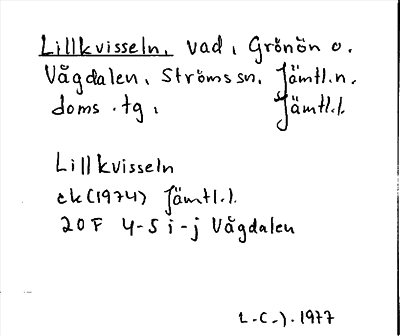 Lillkvisseln, vad, Grönön o.
Vågdalen, Ströms sn. Jämtl.n.
doms.tg, Jämtl.l.
Lillkvisseln
ek (1974) Jämtl.l.
20F 4-5 i-j Vågdalen
L-C-J. 1977